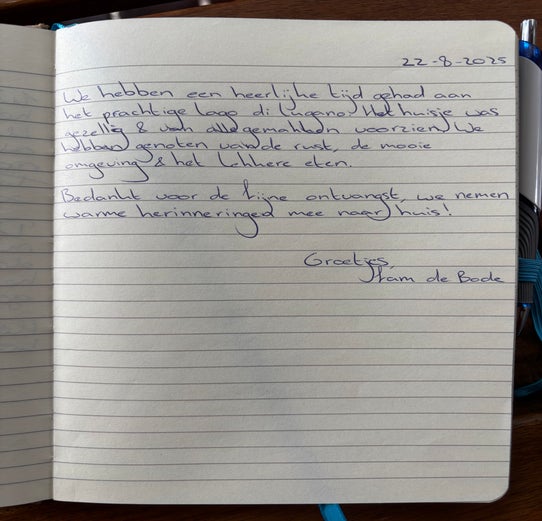 22-8-2025
We hebben een heerlijke tijd gehad aan
het prachtige Lago di Lugano. Het huisje was
gezellig & van alle gemakken voorzien. We
hebben genoten van de rust, de mooie
omgeving & het lekkere eten.
Bedankt voor de fijne ontvangst, we nemen
warme herinneringen mee naar huis!
Groetjes,
Fam de Bode